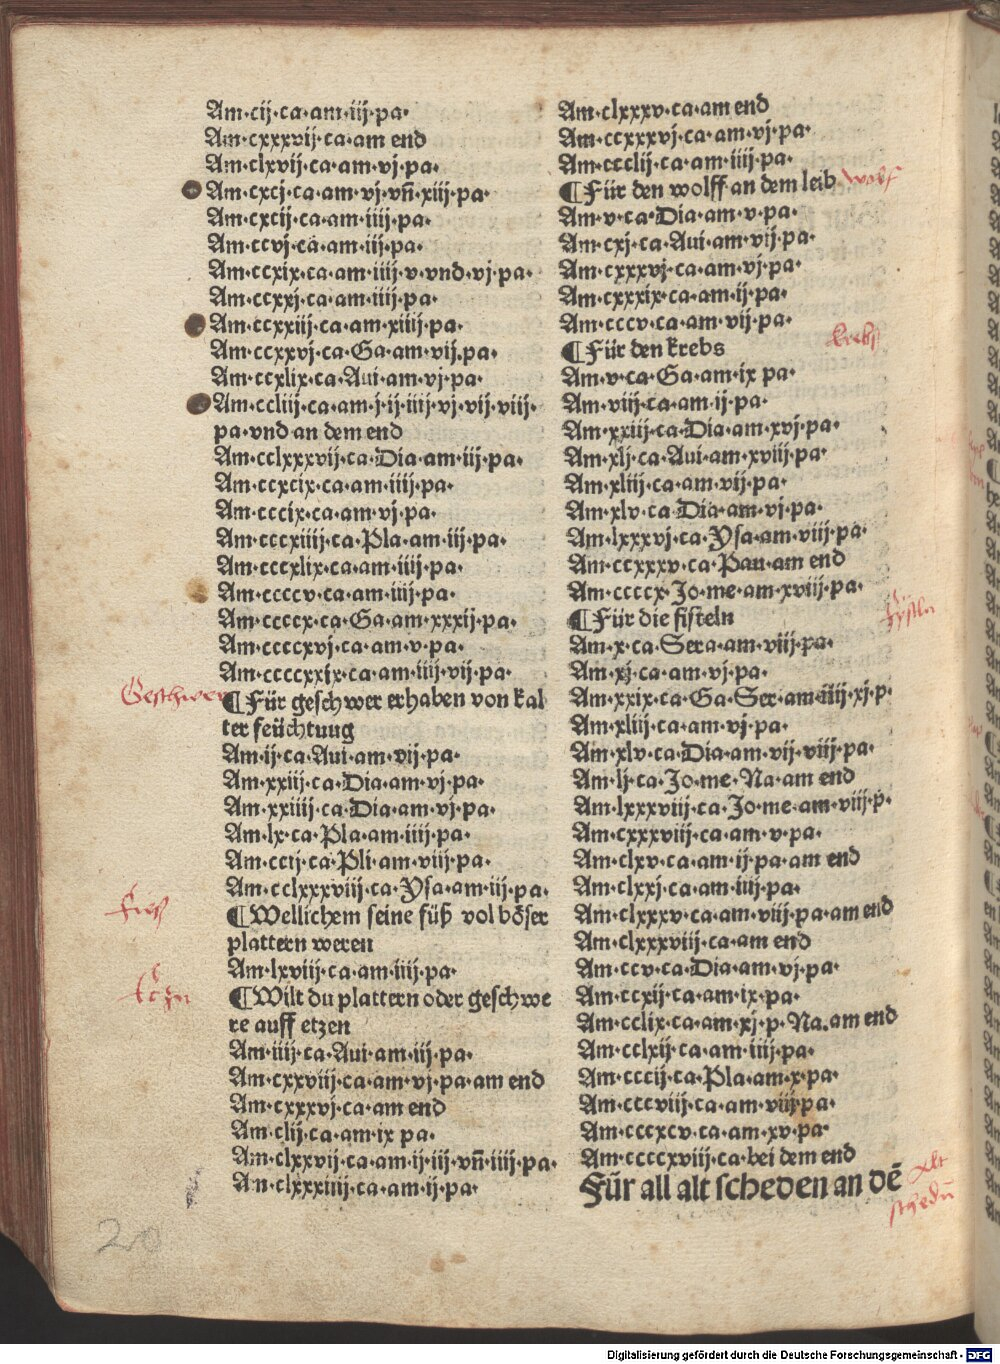 Am·cij·ca·am·iij·pa·
Am·cxxxvij·ca·am end
Am·clxvij·ca·am·vj·pa·
Am·cxcj·ca·am·vj·vn̄·xiij·pa·
Am·cxcij·ca·am·iiij·pa·
Am·ccvj·ca·am·iij·pa·
Am·ccxix·ca·am·iiij·v·vnd·vj·pa·
Am·ccxxj·ca·am·iiij·pa·
Am·ccxxiij·ca·am·xiiij·pa·
Am·ccxxvj·ca·Ga·am·vij·pa·
Am·ccxlix·ca·Aui·am·vj·pa·
Am·ccliij·ca·am·j·ij·iiij·vj·vij·viij·
pa·vnd an dem end
Am·cclxxxvij·ca·Dia·am·iij·pa·
Am·ccxcix·ca·am·iiij·pa·
Am·cccix·ca·am·vj·pa·
Am·cccxiiij·ca·Pla·am·iij·pa·
Am·cccxlix·ca·am·iiij·pa·
Am·ccccv·ca·am·iiij·pa·
Am·ccccx·ca·Ga·am·xxxij·pa·
Am·ccccxvj·ca·am·v·pa·
Am·ccccxxix·ca·am·iiij·vij·pa·
Geschwer
¶Für geschwer erhaben von kal
ter feüchtuug
Am·ij·ca·Aui·am·vij·pa·
Am·xxiij·ca·Dia·am·vj·pa·
Am·xxiiij·ca·Dia·am·vj·pa·
Am·lx·ca·Pla·am·iiij·pa·
Am·ccij·ca·Pli·am·viij·pa·
Am·cclxxxviij·ca·Ysa·am·iij·pa·
¶Wellichem seine füß vol böser
plattern weren
Am·lxviij·ca·am·iiij·pa·
¶Wilt du plattern oder geschwe
re auff etzen
Am·iiij·ca·Aui·am·iij·pa·
Am·cxxviij·ca·am·vj·pa·am end
Am·cxxxvj·ca·am end
Am·clij·ca·am·ix pa·
Am·clxxvij·ca·am·ij·iij·vn̄·iiij·pa·
An·clxxxiiij·ca·am·ij·pa·
20
Am·clxxxv·ca·am end
Am·ccxxxvj·ca·am·vj·pa·
Am·ccclij·ca·am·iiij·pa·
¶Für den wolff an dem leib
wolf
Am·v·ca·Dia·am·v·pa·
Am·cxj·ca·Aui·am·vij·pa·
Am·cxxxvj·ca·am·vj·pa·
Am·cxxxix·ca·am·ij·pa·
Am·cccv·ca·am·vij·pa·
¶Für den krebs
krebß
Am·v·ca·Ga·am·ix pa·
Am·viij·ca·am·ij·pa·
Am·xxiij·ca·Dia·am·xvj·pa·
Am·xlj·ca·Aui·am·xviij·pa·
Am·xliij·ca·am·vij·pa·
Am·xlv·ca·Dia·am·vj·pa·
Am·lxxxvj·ca·Ysa·am·viij·pa·
Am·ccxxxv·ca·Pau·am end
Am·ccccx·Jo·me·am·xviij·pa·
¶Für die fisteln
fystln
Am·x·ca·Sera·am·viij·pa·
Am·xj·ca·am·vj·pa·
Am·xxix·ca·Ga·Ser·am·iiij·xj·p·
Am·xliij·ca·am·vj·pa·
Am·xlv·ca·Dia·am·vij·viij·pa·
Am·lj·ca·Jo·me·Na·am end
Am·lxxxviij·ca·Jo·me·am·viij·p·
Am·cxxxviij·ca·am·v·pa·
Am·clxv·ca·am·ij·pa·am end
Am·clxxj·ca·am·iiij·pa·
Am·clxxxv·ca·am·viij·pa·am end
Am·clxxxviij·ca·am end
Am·ccv·ca·Dia·am·vj·pa·
Am·ccxij·ca·am·ix·pa·
Am·cclix·ca·am·xj·p·Na·am end
Am·cclxij·ca·am·iiij·pa·
Am·cccij·ca·Pla·am·x·pa·
Am·cccviij·ca·am·viij·pa·
Am·cccxcv·ca·am·xv·pa·
Am·ccccxviij·ca·bei dem end
Für all alt scheden an dē
Alt
schedn̄
Digitalisierung gefördert durch die Deutsche Forschungsgemeinschaft - DFG